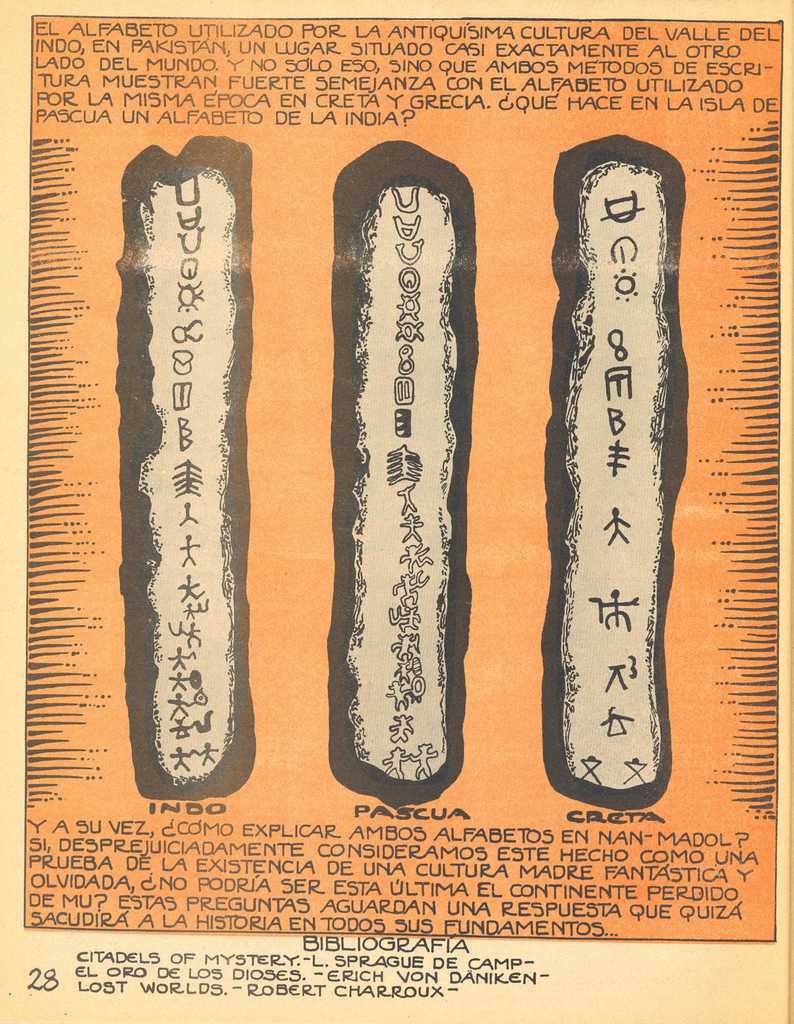 EL ALFABETO UTILIZADO POR LA ANTIQUÍSIMA CULTURA DEL VALLE DEL
INDO, EN PAKISTÁN, UN LUGAR SITUADO CASI EXACTAMENTE AL OTRO
LADO DEL MUNDO. Y NO SÓLO ESO, SINO QUE AMBOS MÉTODOS DE ESCRI-
TURA MUESTRAN FUERTE SEMEJANZA CON EL ALFABETO UTILIZADO
POR LA MISMA ÉPOCA EN CRETA Y GRECIA. ¿QUÉ HACE EN LA ISLA DE
PASCUA UN ALFABETO DE LA INDIA?
INDO PASCUA CRETA
Y A SU VEZ, ¿CÓMO EXPLICAR AMBOS ALFABETOS EN NAN-MADOL?
SI, DESPREJUICIADAMENTE CONSIDERAMOS ESTE HECHO COMO UNA
PRUEBA DE LA EXISTENCIA DE UNA CULTURA MADRE FANTÁSTICA Y
OLVIDADA, ¿NO PODRÍA SER ESTA ÚLTIMA EL CONTINENTE PERDIDO
DE MU? ESTAS PREGUNTAS AGUARDAN UNA RESPUESTA QUE QUIZÁ
SACUDIRÁ A LA HISTORIA EN TODOS SUS FUNDAMENTOS...
BIBLIOGRAFÍA
CITADELS OF MYSTERY.-L. SPRAGUE DE CAMP-
EL ORO DE LOS DIOSES. -ERICH VON DÄNIKEN-
LOST WORLDS. -ROBERT CHARROUX-
28